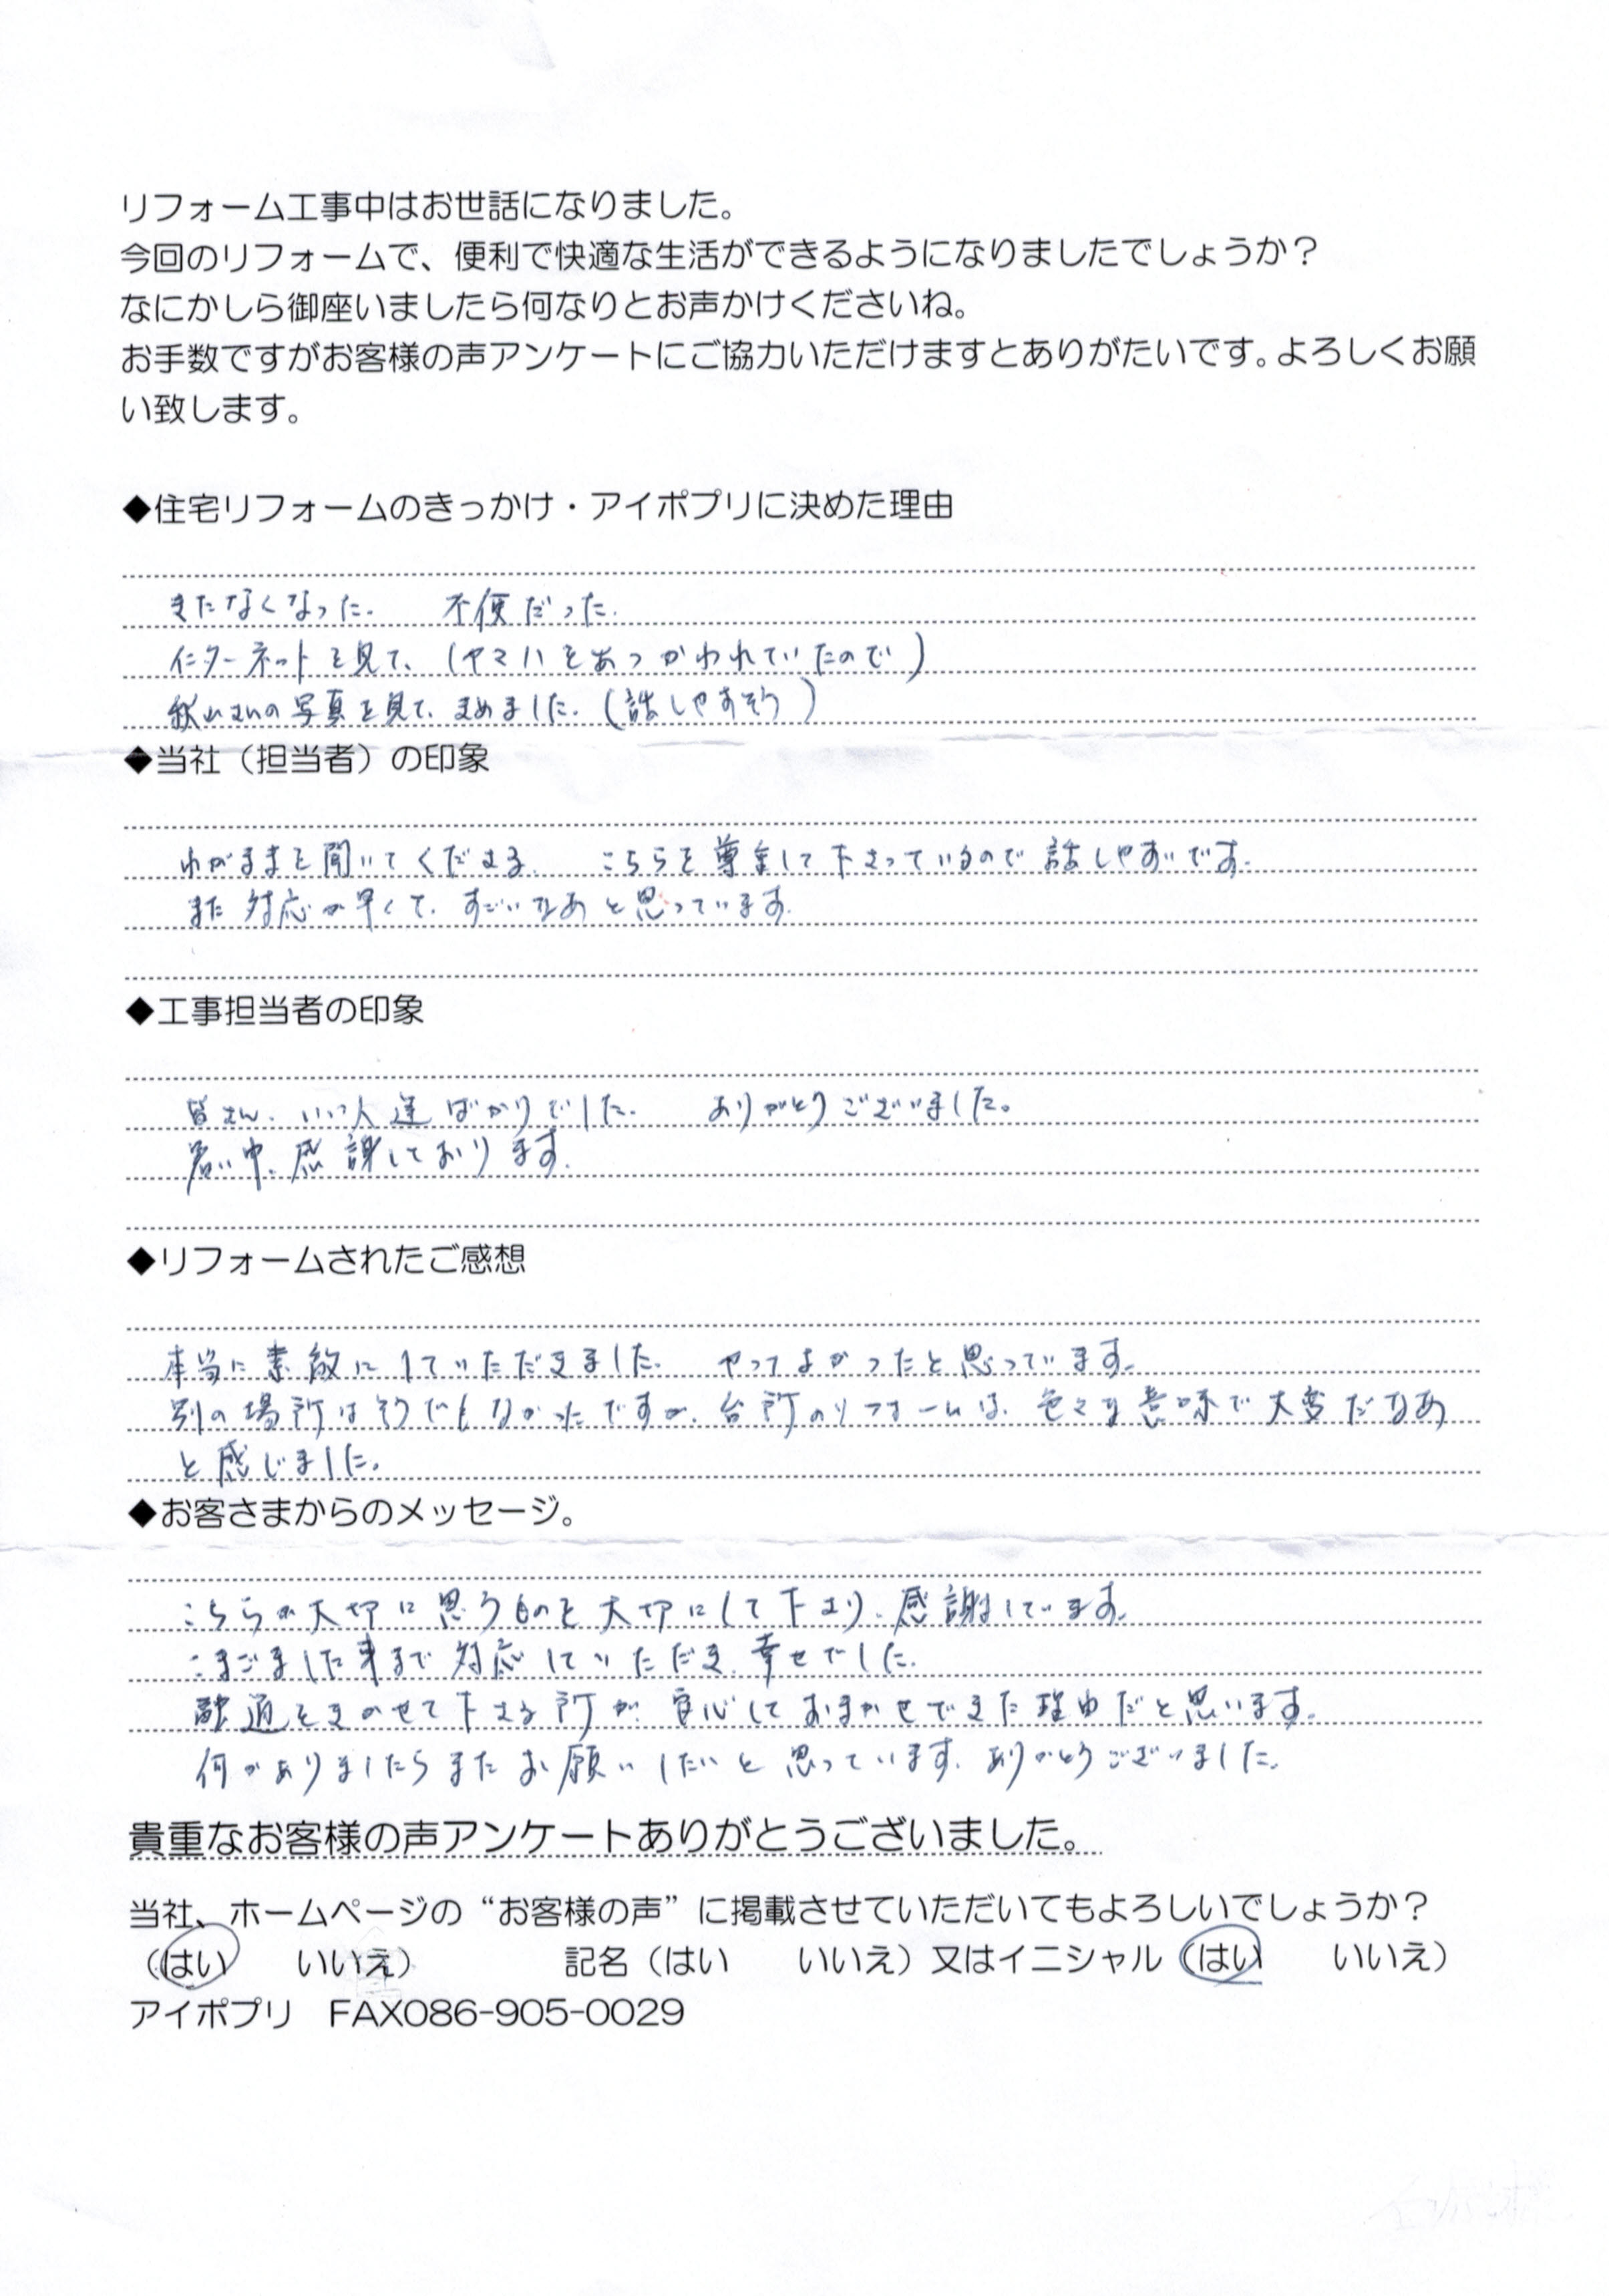 リフォーム工事中はお世話になりました。
今回のリフォームで、便利で快適な生活ができるようになりましたでしょうか？
なにかしら御座いましたら何なりとお声かけくださいね。
お手数ですがお客様の声アンケートにご協力いただけますとありがたいです。よろしくお願
い致します。
◆住宅リフォームのきっかけ・アイポプリに決めた理由
きたなくなった。 不便だった。
インターネットを見て、（ヤマハをあつかわれていたので）
秋山さんの写真を見て、きめました。（話しやすそう）
◆当社（担当者）の印象
わがままを聞いてくださる。 こちらを尊重して下さっているので話しやすいです。
また対応が早くて、すごいなあと思っています。
◆工事担当者の印象
皆さん、いい人達ばかりでした。 ありがとうございました。
暑い中、感謝しております。
◆リフォームされたご感想
本当に素敵にしていただきました。 やってよかったと思っています。
別の場所はそうでもなかったですが、台所のリフォームは、色々な意味で大変だなあ
と感じました。
◆お客さまからのメッセージ。
こちらが大切に思うものを大切にして下さり、感謝しています。
こまごました事まで対応していただき、幸せでした。
融通をきかせて下さる所が、安心しておまかせできた理由だと思います。
何かありましたらまたお願いしたいと思っています。ありがとうございました。
貴重なお客様の声アンケートありがとうございました。
当社、ホームページの“お客様の声”に掲載させていただいてもよろしいでしょうか？
（はい いいえ） 記名（はい いいえ）又はイニシャル（はい いいえ）
アイポプリ FAX086-905-0029